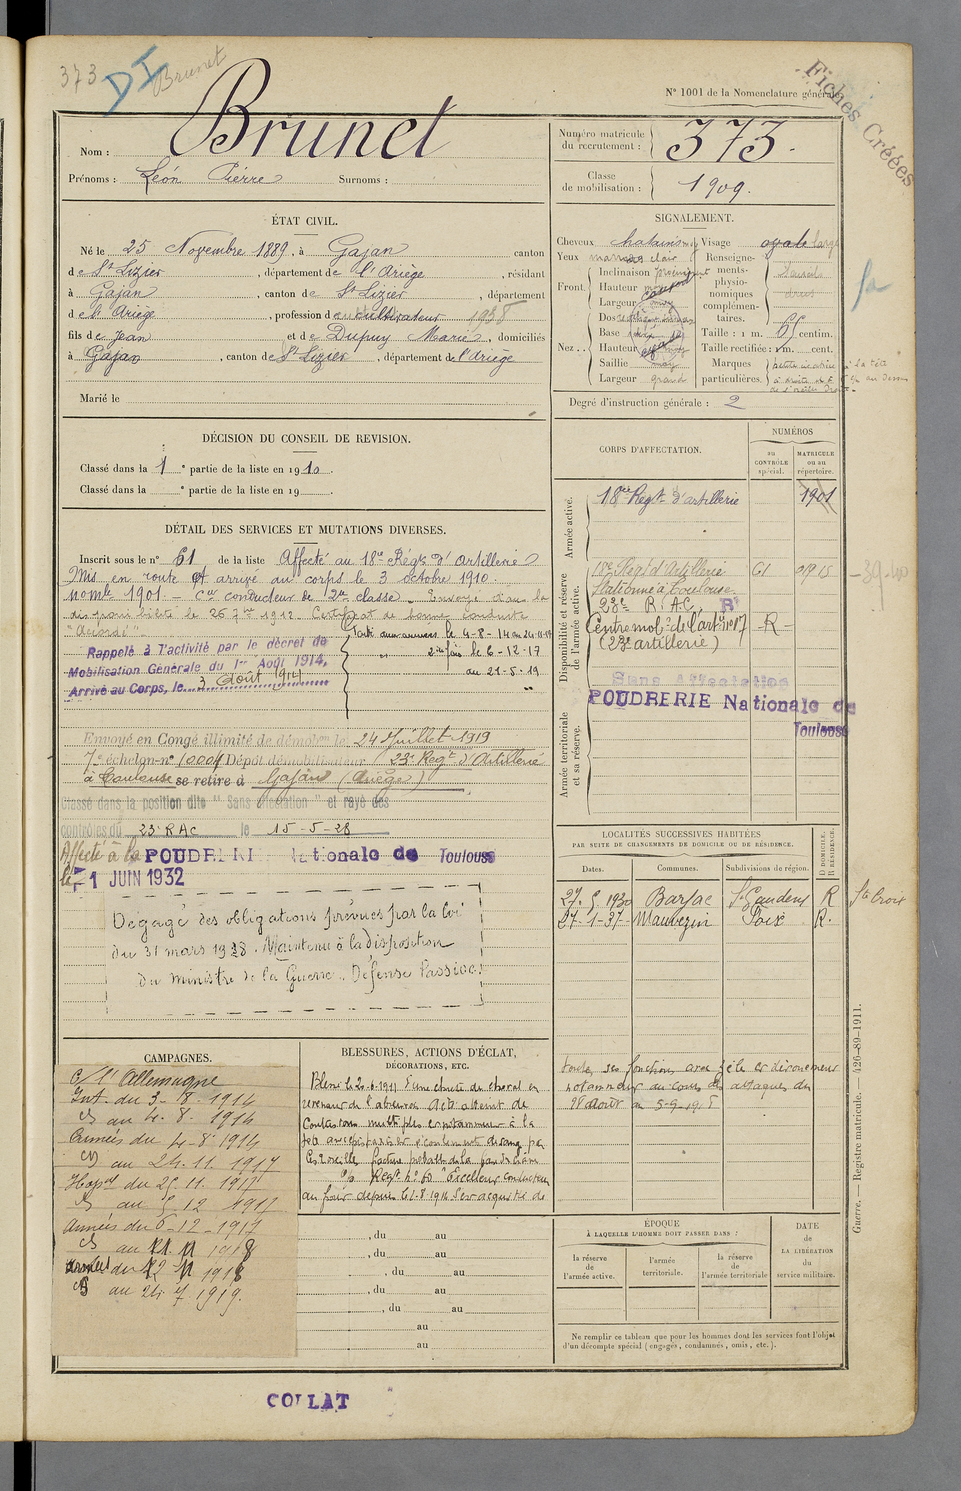 373 DI Brunet
Fiches Créées
N° 1001 de la Nomenclature générale
Nom : Brunet
Prénoms : Léon Pierre Surnoms :
Numéro matricule du recrutement : 373.
Classe de mobilisation : 1909.
ÉTAT CIVIL.
Né le 25 Novembre 1889, à Gajan canton
de St Lizier, département de l'Ariège, résidant
à Gajan, canton de St Lizier, département
de l'Ariège, profession de cultivateur 1938
fils de Jean et de Dupuy Marie, domiciliés
à Gajan, canton de St Lizier, département de l'Ariège
Marié le
SIGNALEMENT.
Cheveux chatains Visage ovale large
Yeux marron clair Renseignements physionomiques complémentaires.
Front. Inclinaison
Hauteur moy
Largeur moy
Nez. Dos
Base
Hauteur moy
Saillie moy
Largeur grand
Taille : 1 m. 65 centim.
Taille rectifiée : 1m. cent.
Marques particulières.
Degré d'instruction générale : 2
DÉCISION DU CONSEIL DE REVISION.
Classé dans la 1e partie de la liste en 1910.
Classé dans la e partie de la liste en 19 .
CORPS D'AFFECTATION.
NUMÉROS
au CONTRÔLE spécial.
MATRICULE ou au répertoire.
Armée active.
18e Régt d'artillerie 1901
Disponibilité et réserve de l'armée active.
18e Régt d'Artillerie
Stationné à Toulouse
23e R.A.C.
Centre mob. de l'artie n° 17 -R-
(23e artillerie)
Sans Affectation
POUDRERIE Nationale de
Toulouse
Armée territoriale et sa réserve.
DÉTAIL DES SERVICES ET MUTATIONS DIVERSES.
Inscrit sous le n° 61 de la liste Affecté au 18e Régt d'Artillerie
Mis en route et arrivé au corps le 3 octobre 1910.
nomle 1901. — Cer conducteur de 2e classe. Envoyé dans la
disponibilité le 26 7bre 1912. Certificat de bonne conduite
"Accordé".
Rappelé à l'activité par le décret de
Mobilisation Générale du 1er Août 1914,
Arrivé au Corps, le 3 Août 1914
Parti aux armées le 4-8-14 au 24-11-17
" 2e fois le 6-12-17
au 21-5-19
Envoyé en Congé illimité de démobon le 24 Juillet 1919
7e échelon n° 10004 Dépôt démobilisateur 23e Régt d'Artillerie
à Toulouse se retire à Gajan (Ariège)
Classé dans la position dite "Sans affectation" et rayé des
contrôles du 23e RAC le 15-5-28
Affecté à la POUDRERIE Nationale de Toulouse
le 1 JUIN 1932
Dégagé des obligations prévues par la loi
du 31 mars 1928. Maintenu à la disposition
du ministre de la Guerre. Défense Passive.
LOCALITÉS SUCCESSIVES HABITÉES
PAR SUITE DE CHANGEMENTS DE DOMICILE OU DE RÉSIDENCE.
Dates. Communes. Subdivisions de région. D DOMICILE. R RÉSIDENCE.
27. 5. 1930 Barjac St Gaudens R Ste Croix
27-1-37- Mauvezin Foix R.
CAMPAGNES.
C/ l'Allemagne
Int. du 3-8-1914
au 4.8.1914
Armées du 4-8-1914
au 24.11.1917
Hopal du 25.11.1917
au 5-12 1917
Armées du 6-12-1917
au 11.11 1918
Armées du 12 11 1918
au 24 7 1919.
BLESSURES, ACTIONS D'ÉCLAT,
DÉCORATIONS, ETC.
Blessé le 2-6-1917 d'une chute de cheval en
revenant de l'abreuvoir
contusions multiples
Regt n° 60 "Excellent conducteur
au front depuis le 4-8-1914 s'est acquitté de
toutes ses fonctions avec zèle et dévouement
notamment au cours des attaques du
28 août au 5-9-1918
, du au
, du au
, du au
, du au
, du au
au
au
ÉPOQUE
À LAQUELLE L'HOMME DOIT PASSER DANS :
la réserve de l'armée active.
l'armée territoriale.
la réserve de l'armée territoriale
DATE de LA LIBÉRATION du service militaire.
Ne remplir ce tableau que pour les hommes dont les services font l'objet
d'un décompte spécial (engagés, condamnés, omis, etc.).
Guerre. — Registre matricule. — 426-89-1911.
COLLAT